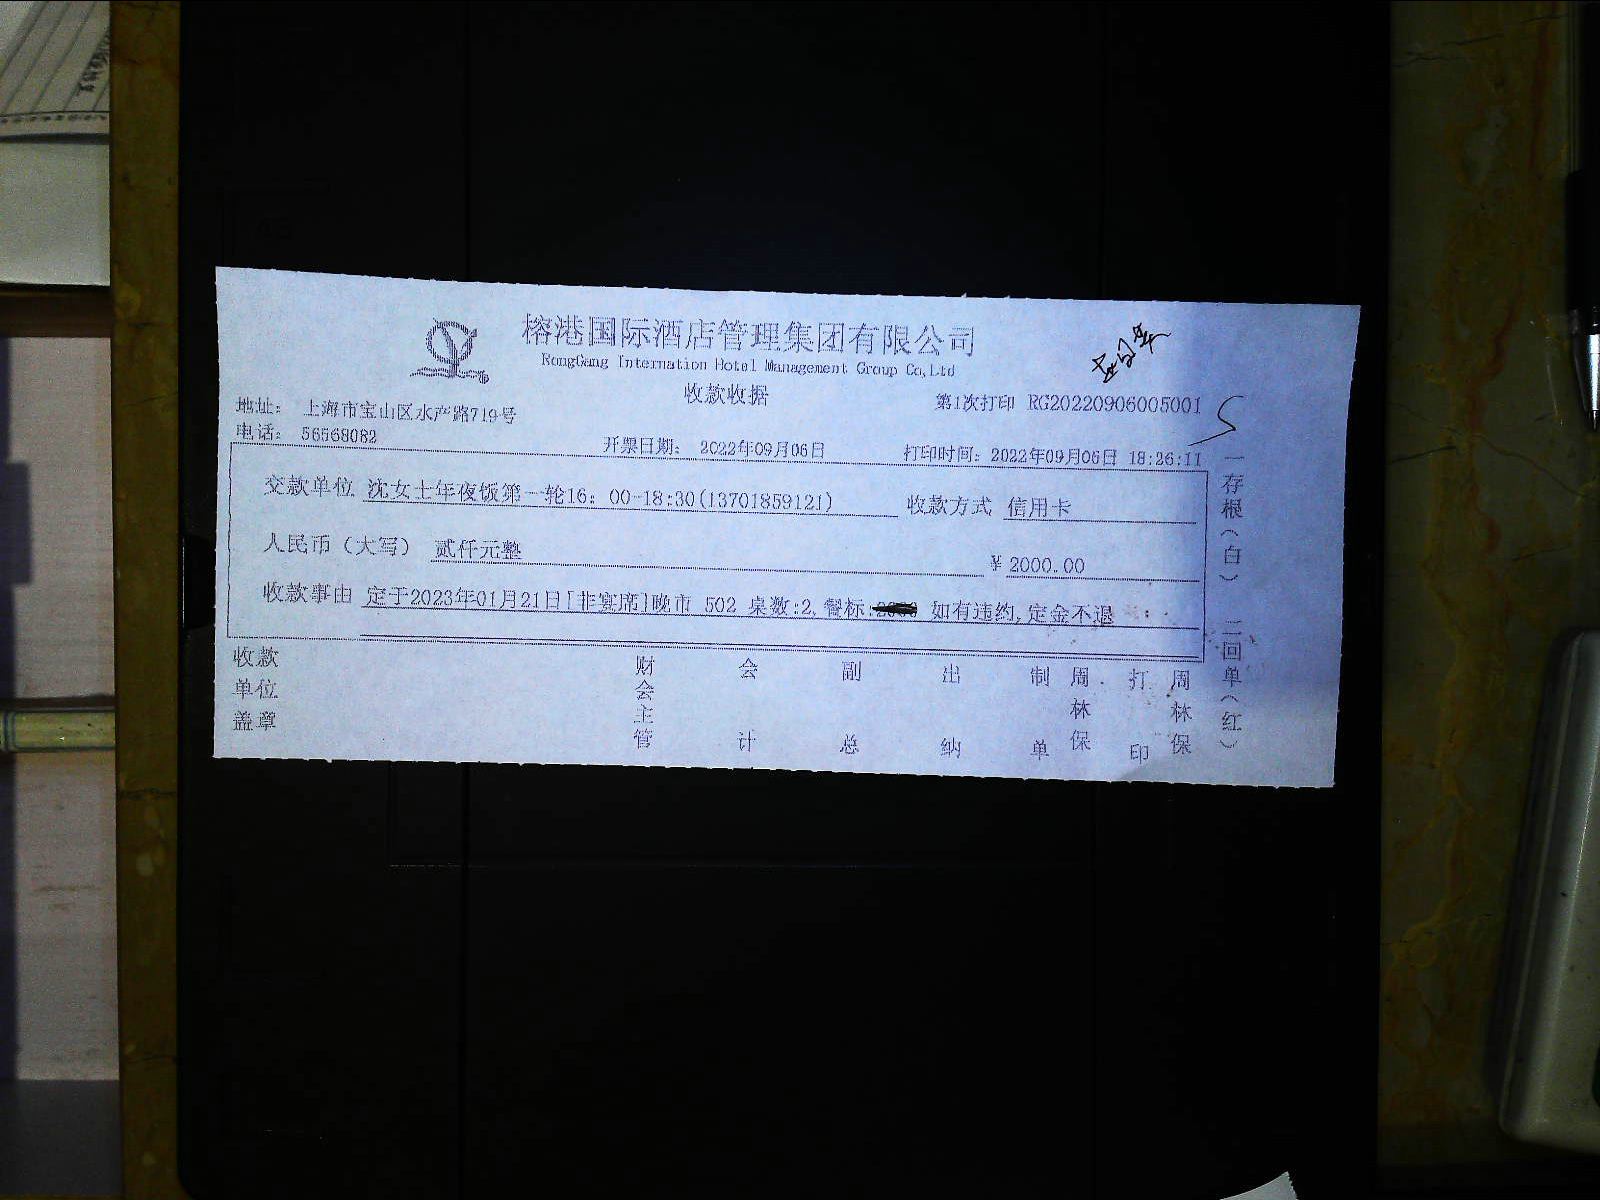 榕港国际酒店管理集团有限公司
RongGang Internation Hotel Management Group Co,Ltd
收款收据
第1次打印 RG20220906005001
地址： 上海市宝山区水产路719号
电话： 56568082
开票日期： 2022年09月06日
打印时间：2022年09月06日 18:26:11
交款单位 沈女士年夜饭第一轮16：00-18:30(13701859121)
收款方式 信用卡
人民币（大写） 贰仟元整
¥ 2000.00
收款事由 定于2023年01月21日[非宴席]晚市 502 桌数:2,餐标: 如有违约,定金不退
收款单位盖章
财会主管
会计
副总
出纳
制单 周林保
打印 周林保
一存根（白） 二回单（红）